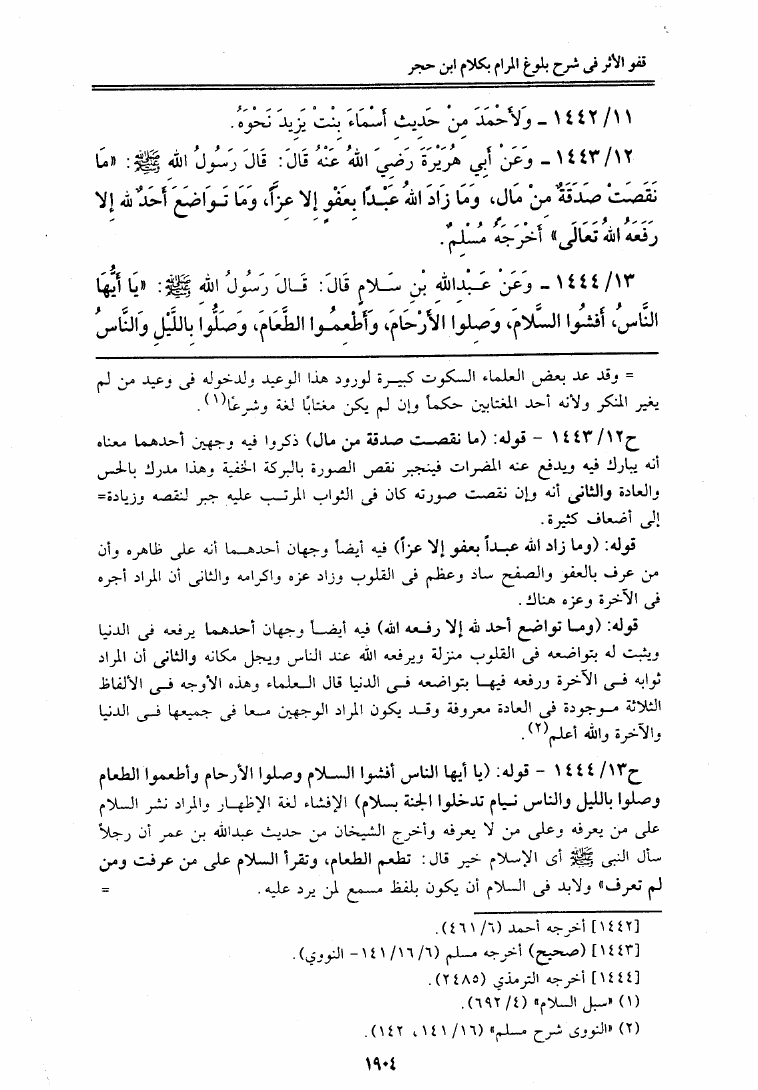 قفو الأثر فى شرح بلوغ المرام بكلام ابن حجر
١١/ ١٤٤٢ ـ وَلأَحْمَدَ مِنْ حَدِيثِ أَسْمَاءَ بِنْتِ يَزِيدَ نَحْوَهُ.
١٢/ ١٤٤٣ ـ وَعَنْ أَبِي هُرَيْرَةَ رَضِيَ اللهُ عَنْهُ قَالَ: قَالَ رَسُولُ اللهِ ﷺ: «مَا
نَقَصَتْ صَدَقَةٌ مِنْ مَالٍ، وَمَا زَادَ اللهُ عَبْداً بِعَفْوٍ إلا عِزّاً، وَمَا تَوَاضَعَ أَحَدٌ لله إلا
رَفَعَهُ اللهُ تَعَالَى» أَخْرَجَهُ مُسْلِمٌ.
١٣/ ١٤٤٤ ـ وَعَنْ عَبْدِاللهِ بْنِ سَلامٍ قَالَ: قَالَ رَسُولُ اللهِ ﷺ: «يَا أَيُّهَا
النَّاسُ، أَفشُوا السَّلامَ، وَصِلوا الأَرْحَامَ، وَأَطْعِمُوا الطَّعَامَ، وَصَلُّوا بِاللَّيْلِ وَالنَّاسُ
= وقد عد بعض العلماء السكوت كبيرة لورود هذا الوعيد ولدخوله فى وعيد من لم
يغير المنكر ولأنه أحد المغتابين حكماً وإن لم يكن مغتابًا لغة وشرعًا(١).
ح١٢/ ١٤٤٣ - قوله: (ما نقصت صدقة من مال) ذكروا فيه وجهين أحدهما معناه
أنه يبارك فيه ويدفع عنه المضرات فينجبر نقص الصورة بالبركة الخفية وهذا مدرك بالحس
والعادة والثانى أنه وإن نقصت صورته كان فى الثواب المرتب عليه جبر لنقصه وزيادة=
إلى أضعاف كثيرة.
قوله: (وما زاد الله عبداً بعفو إلا عزاً) فيه أيضاً وجهان أحدهما أنه على ظاهره وأن
من عرف بالعفو والصفح ساد وعظم فى القلوب وزاد عزه واكرامه والثانى أن المراد أجره
فى الآخرة وعزه هناك.
قوله: (وما تواضع أحد لله إلا رفعه الله) فيه أيضاً وجهان أحدهما يرفعه فى الدنيا
ويثبت له بتواضعه فى القلوب منزلة ويرفعه الله عند الناس ويجل مكانه والثانى أن المراد
ثوابه فى الآخرة ورفعه فيها بتواضعه فى الدنيا قال العلماء وهذه الأوجه فى الألفاظ
الثلاثة موجودة فى العادة معروفة وقد يكون المراد الوجهين معا فى جميعها فى الدنيا
والآخرة والله أعلم(٢).
ح١٣/ ١٤٤٤ - قوله: (يا أيها الناس أفشوا السلام وصلوا الأرحام وأطعموا الطعام
وصلوا بالليل والناس نيام تدخلوا الجنة بسلام) الإفشاء لغة الإظهار والمراد نشر السلام
على من يعرفه وعلى من لا يعرفه وأخرج الشيخان من حديث عبدالله بن عمر أن رجلاً
سأل النبى ﷺ أى الإسلام خير قال: تطعم الطعام، وتقرأ السلام على من عرفت ومن
لم تعرف» ولابد فى السلام أن يكون بلفظ مسمع لمن يرد عليه. =
[١٤٤٢] أخرجه أحمد (٦/ ٤٦١).
[١٤٤٣] (صحيح) أخرجه مسلم (٦/ ١٦/ ١٤١- النووي).
[١٤٤٤] أخرجه الترمذي (٢٤٨٥).
(١) «سبل السلام» (٤/ ٦٩٢).
(٢) «النووى شرح مسلم» (١٦/ ١٤١، ١٤٢).
١٩٠٤